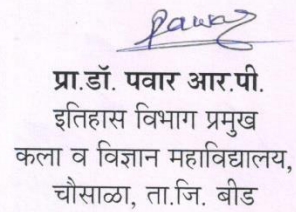 Pawar
प्रा.डॉ. पवार आर.पी.
इतिहास विभाग प्रमुख
कला व विज्ञान महाविद्यालय,
चौसाळा, ता.जि. बीड